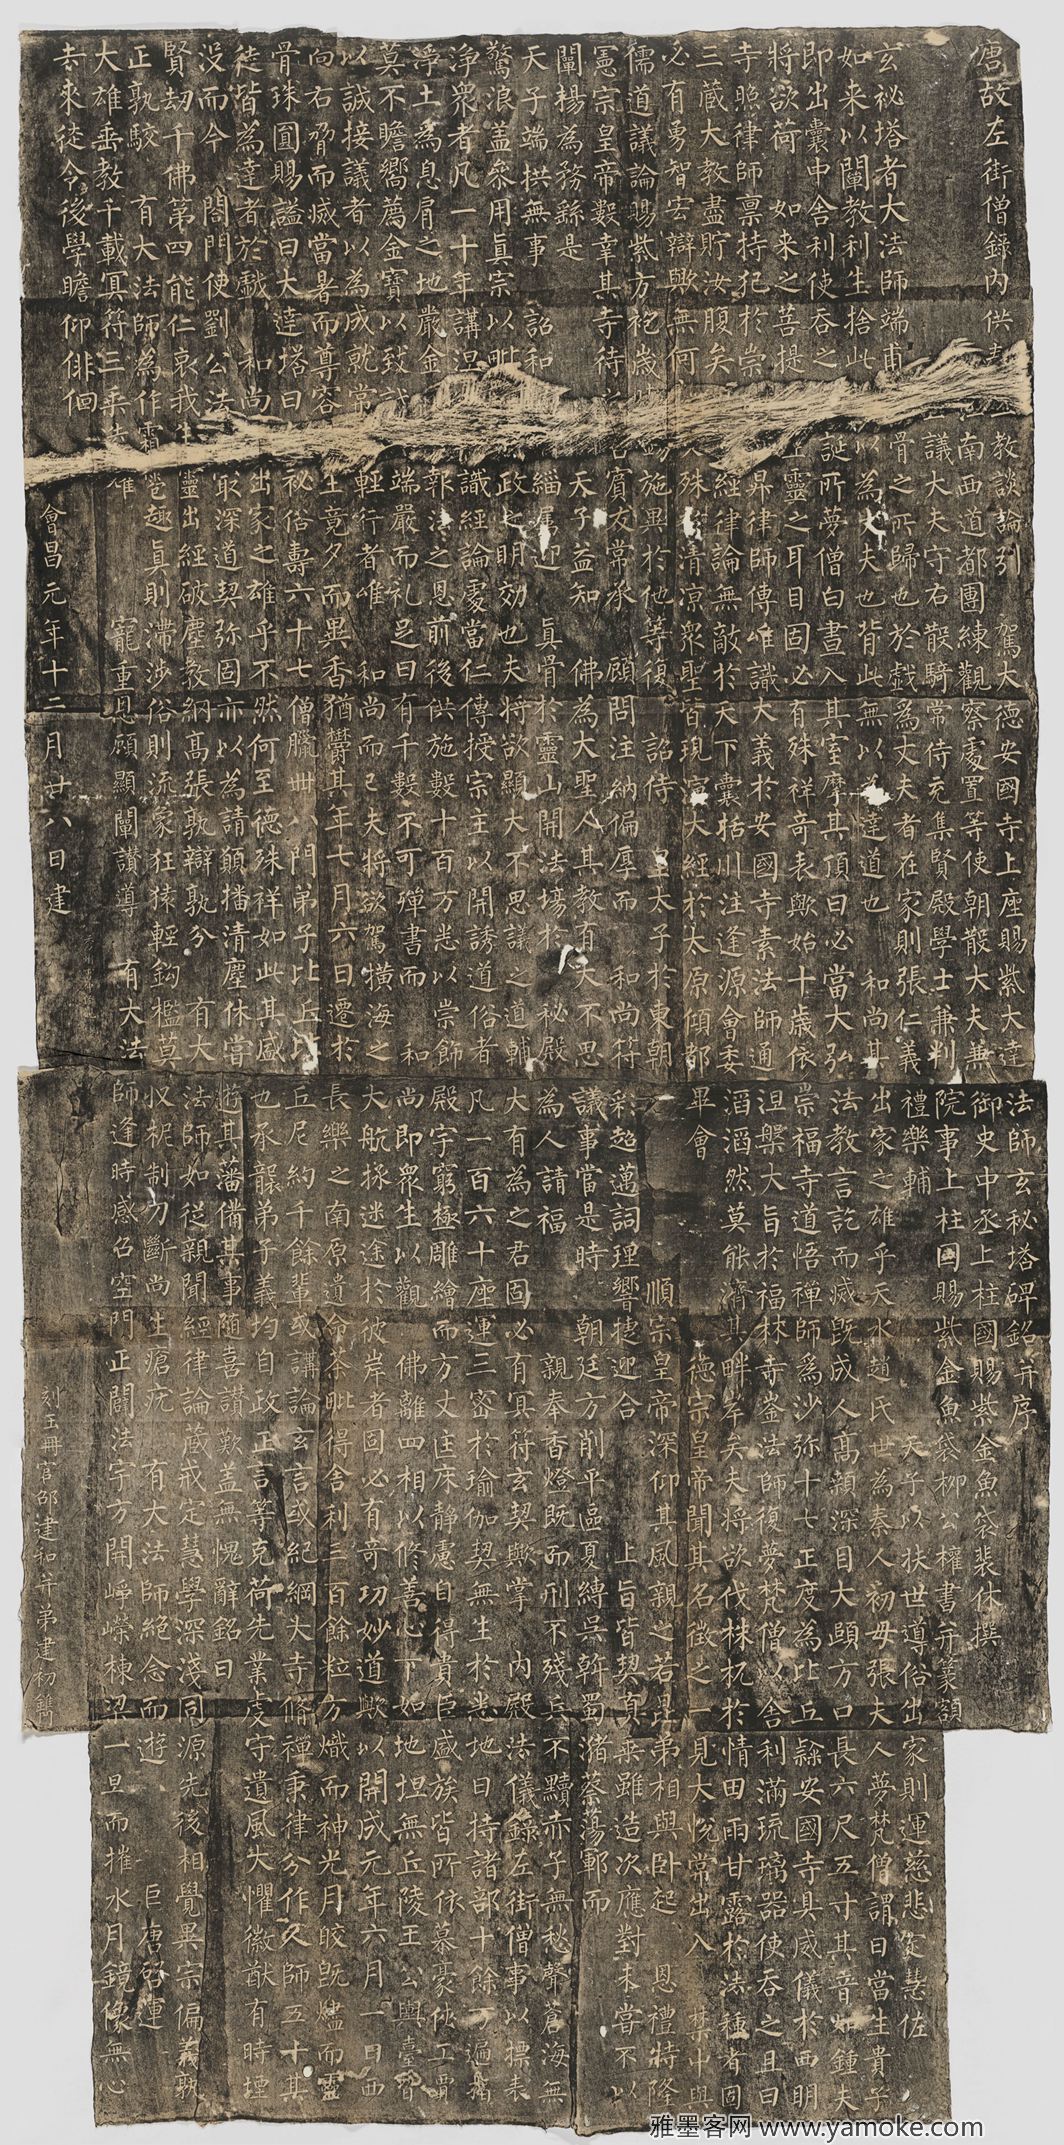 唐故左街僧錄內供奉教談論引 駕大德安國寺上座賜紫大達法師玄秘塔碑銘并序
南西道都團練觀察處置等使朝散大夫兼御史中丞上柱國賜紫金魚袋裴休撰
議大夫守右散騎常侍充集賢殿學士兼判院事上柱國賜紫金魚袋柳公權書并篆額
玄祕塔者大法師端甫骨之所歸也於戲為丈夫者在家則張仁義禮樂輔 天子以扶世導俗出家則運慈悲定慧佐
如来以闡教利生捨此以為丈夫也背此無以為達道也 和尚其出家之雄乎天水趙氏世為秦人初母張夫人夢梵僧謂曰當生貴子
即出囊中舍利使吞之誕所夢僧白晝入其室摩其頂曰必當大弘法教言訖而滅既成人高顙深目大頤方口長六尺五寸其音如鍾夫
將欲荷 如来之菩提生靈之耳目固必有殊祥奇表歟始十歲依崇福寺道悟禪師為沙弥十七正度為比丘隸安國寺具威儀於西明
寺照律師禀持犯於崇昇律師傳唯識大義於安國寺素法師通涅槃大旨於福林寺崟法師復夢梵僧以舍利滿琉璃器使吞之且曰
三藏大教盡貯汝腹矣經律論無敵於天下囊括川注逢源會委滔滔然莫能濟其畔岸矣夫將欲伐株杌於情田雨甘露於法種者固
必有勇智宏辯歟無何殊清凉衆聖皆現演大經於太原傾都畢會 德宗皇帝聞其名徵之一見大悅常出入 禁中與
儒道議論賜紫方袍歲錫施異於他等復 詔侍 皇太子於東朝 順宗皇帝深仰其風親之若昆弟相與卧起 恩禮特隆
憲宗皇帝數幸其寺待賓友常承 顧問注納偏厚而 和尚符彩超邁詞理響捷迎合 上旨皆契真乘雖造次應對未嘗不以
闡揚為務繇是 天子益知 佛為大聖人其教有大不思議事當是時 朝廷方削平區夏縛吳斡蜀瀦蔡蕩鄆而
天子端拱無事 詔和緇屬迎 真骨於靈山開法場於 秘殿為人請福 親奉香燈既而刑不殘兵不黷赤子無愁聲蒼海無
驚浪蓋參用真宗以毗政之明効也夫將欲顯大不思議之道輔大有為之君固必有冥符玄契歟掌 內殿法儀錄左街僧事以摽表
淨衆者凡一十年講涅識經論處當仁傳授宗主以開誘道俗者凡一百六十座運三密於瑜伽契無生於悉地日持諸部十餘万遍指
淨土為息肩之地嚴金報法之恩前後供施數十百万悉以崇飾殿宇窮極雕繪而方丈匡床靜慮自得貴臣盛族皆所依慕豪俠工賈
莫不瞻嚮薦金寶以致端嚴而礼足日有千數不可殫書而 和尚即衆生以觀 佛離四相以修善心下如地坦無丘陵王公輿臺皆
以誠接議者以為成就常輕行者唯 和尚而已夫將欲駕橫海之大航拯迷途於彼岸者固必有奇功妙道歟以開成元年六月一日西
向右脇而滅當暑而尊容生竟夕而異香猶鬱其年七月六日遷於長樂之南原遺命荼毗得舍利三百餘粒方熾而神光月皎既燼而靈
骨珠圓賜謚曰大達塔曰祕俗壽六十七僧臘卌八門弟子比丘比丘尼約千餘輩或講論玄言或紀綱大寺脩禪秉律分作人師五十其
徒皆為達者於戲 和尚出家之雄乎不然何至德殊祥如此其盛也承襲弟子義均自政正言等克荷先業虔守遺風大懼徽猷有時堙
沒而今 閤門使劉公法最深道契弥固亦以為請願播清塵休嘗遊其藩備其事隨喜讚歎蓋無愧辭銘曰
賢劫千佛第四能仁哀我生靈出經破塵教網高張孰辯孰分 有大法師如從親聞經律論藏戒定慧學深淺同源先後相覺異宗偏義孰
正孰駮 有大法師為作霜雹趣真則滯涉俗則流象狂猿輕鈎檻莫收柅制刀斷尚生瘡疣 有大法師絕念而遊 巨唐啓運
大雄垂教千載冥符三乘耀 寵重恩顧顯闡讚導 有大法師逢時感召空門正闢法宇方開崢嶸棟梁一旦而摧水月鏡像無心
去来徒令後學瞻仰俳佪
會昌元年十二月廿八日建
刻玉冊官邵建和并弟建初鐫
雅墨客网 www.yamoke.com